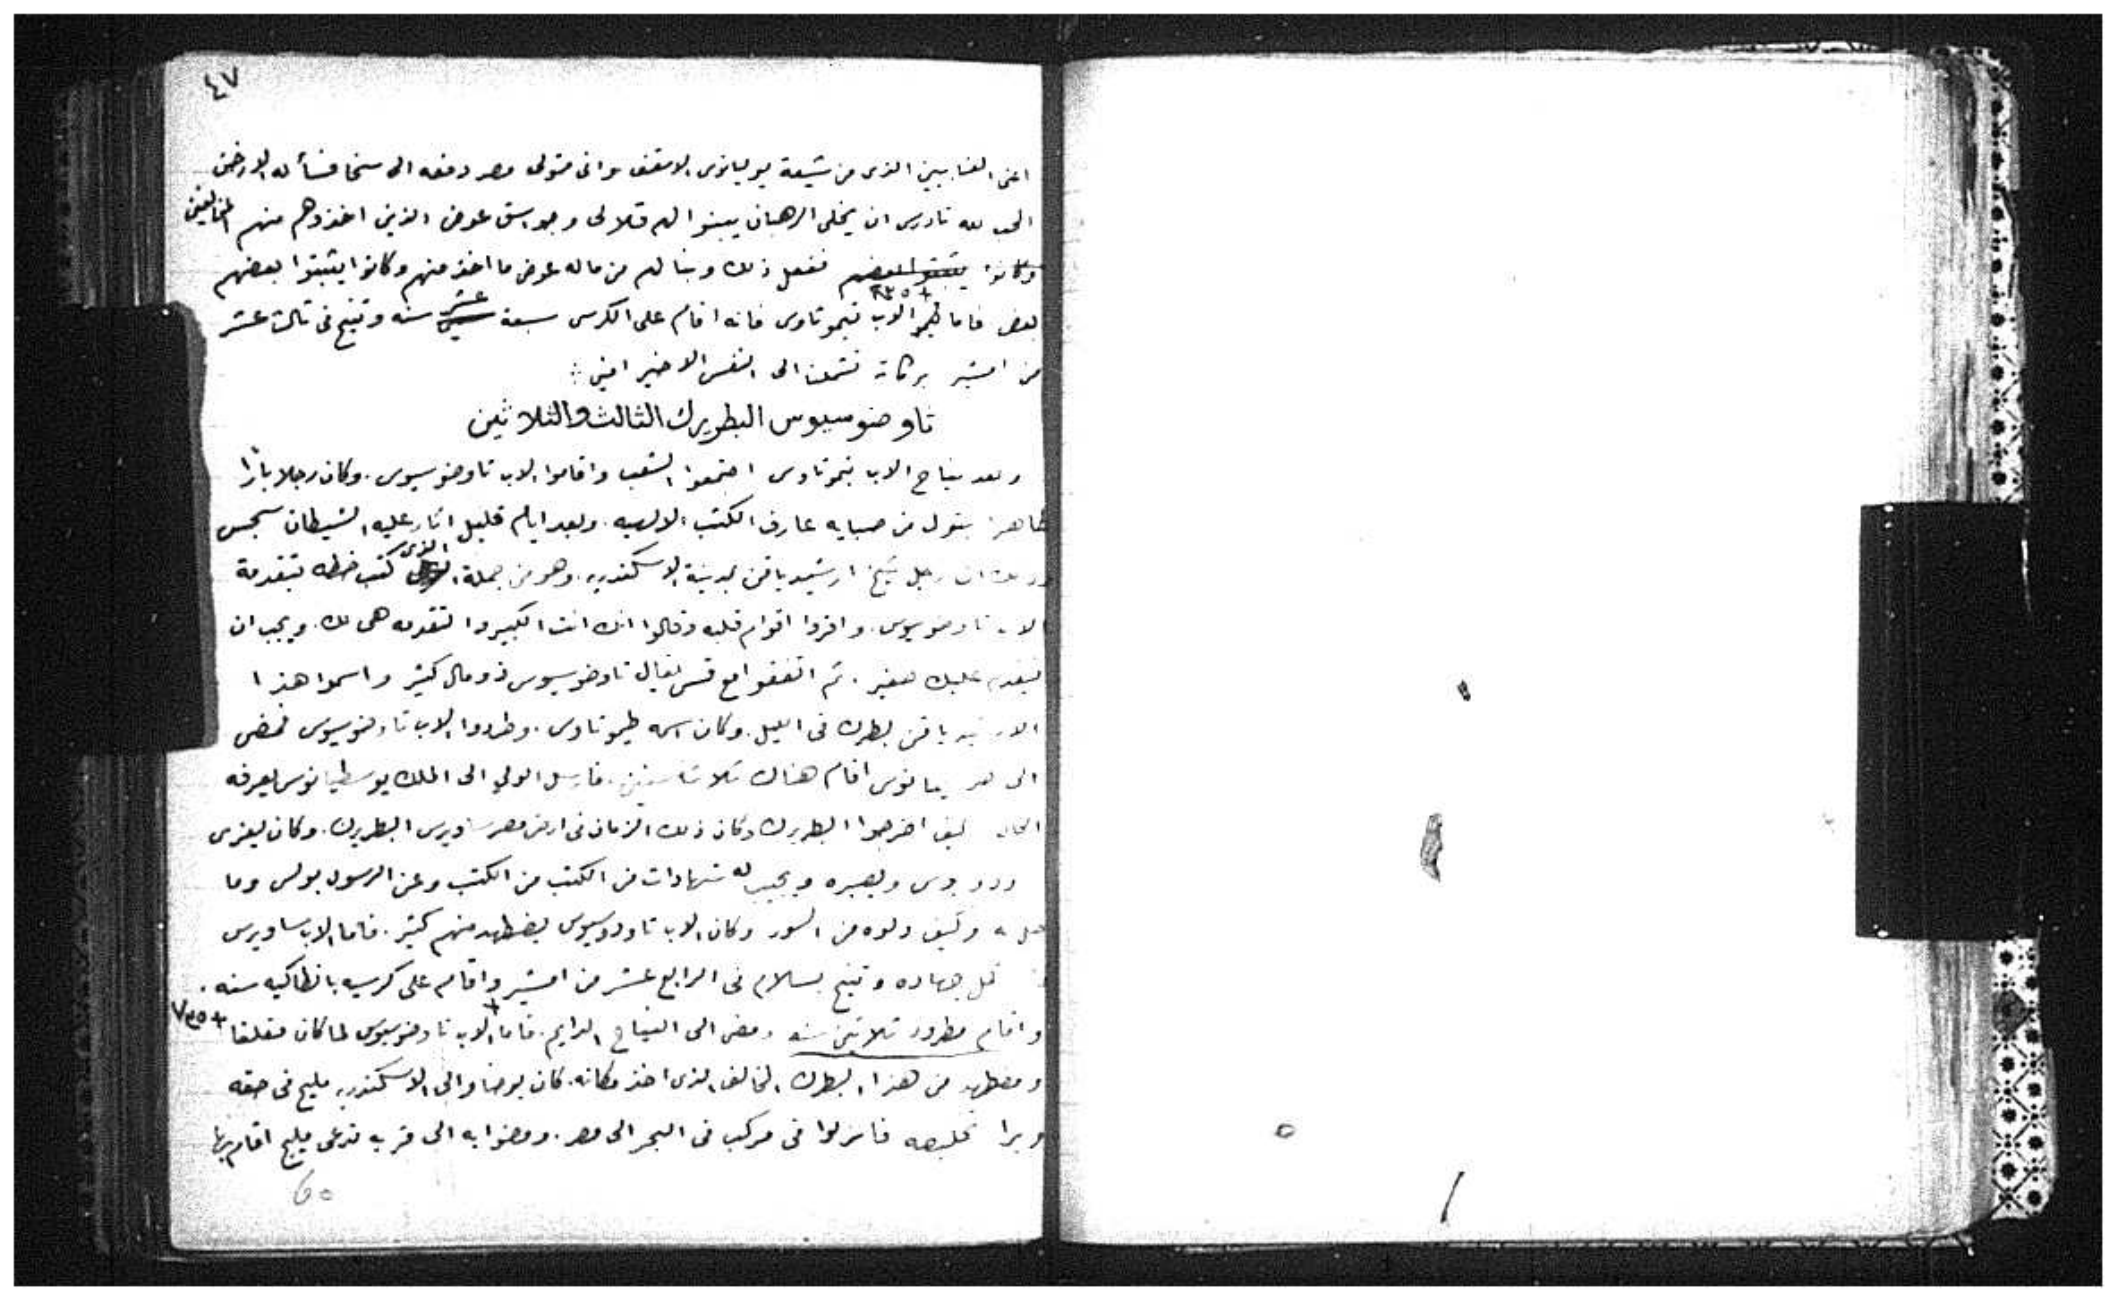 ٤٧
اعنى الغنايين الذى من شيعة يوليانوس الاسقف وانى متولى مصر دفعه الى سخا فسأله الارخن
المحب لله تادرس ان يخلى الرهبان يبنوا لهم قلالى وجواسق عوض الذين اخذوهم منهم المخالفين
وكانوا يثبتوا بعضهم ففعل ذلك وبنا لهم من ماله عوض ما اخذ منهم وكانوا يثبتوا بعضهم
+ ٥٣٥
بعض فاما الاب تيموتاوس فانه اقام على الكرسى سبعة عشر سنه وتنيح فى تالت عشر
من امشير بركاته تشملنا الى النفس الاخير امين
تاوضوسيوس البطريرك الثالث والثلاثين
وبعد نياح الاب تيموتاوس اجتمعوا الشعب واقاموا الاب تاوضوسيوس. وكان رجلا بارا
طاهرا بتول من صبايه عارف الكتب الالهيه. وبعد ايام قليل اثار عليه الشيطان سجس
وذلك ان رجل شيخ ارشيدياقن بمدينة الاسكندريه. وهو من جملة الذى كتب خطه بتقدمة
الاب تاوضوسيوس. وافردا اقوام قلبه وقالوا انك انت الكبير والتقدمه هى لك. ويجب ان
فيقدم عليك صغير. ثم اتفقوا مع قس يقال تاوضوسيوس ذو مال كثير واسموا هذا
الارشيدياقن بطرك فى الليل. وكان اسمه طيموتاوس. وطردوا الاب تاوضوسيوس فمضى
الى اقام هناك ثلاثة سنين. فارسل الوالى الى الملك يوسطيانوس يعرفه
الحال كيف اخرجوا البطريرك وكان ذلك الزمان فى ارض مصر ساويرس البطريرك. وكان يعزى
ويصبره ويجيب له شهادات من الكتب من الكتب وعن الرسول بولس وما
وكيف دلوه من السور وكان الاب تاودوسيوس يضطهد منهم كثير. فاما الاب ساويرس
كمل جهاده وتنيح بسلام فى الرابع عشر من امشير واقام على كرسيه بانطاكيه سنه.
واقام مطرود ثلاثين سنه ومضى الى النياح الدايم. فاما الاب تاوضوسيوس لما كان مقلقا + ٥٣٧
ومضطهد من هذا البطرك المخالف الذى اخذ مكانه. كان يوحنا والى الاسكندريه مليح فى حقه
ويرا تخليصه فانزلوا فى مركب فى البحر الى مصر. ومضوا به الى قريه تدعى مليج اقام بها